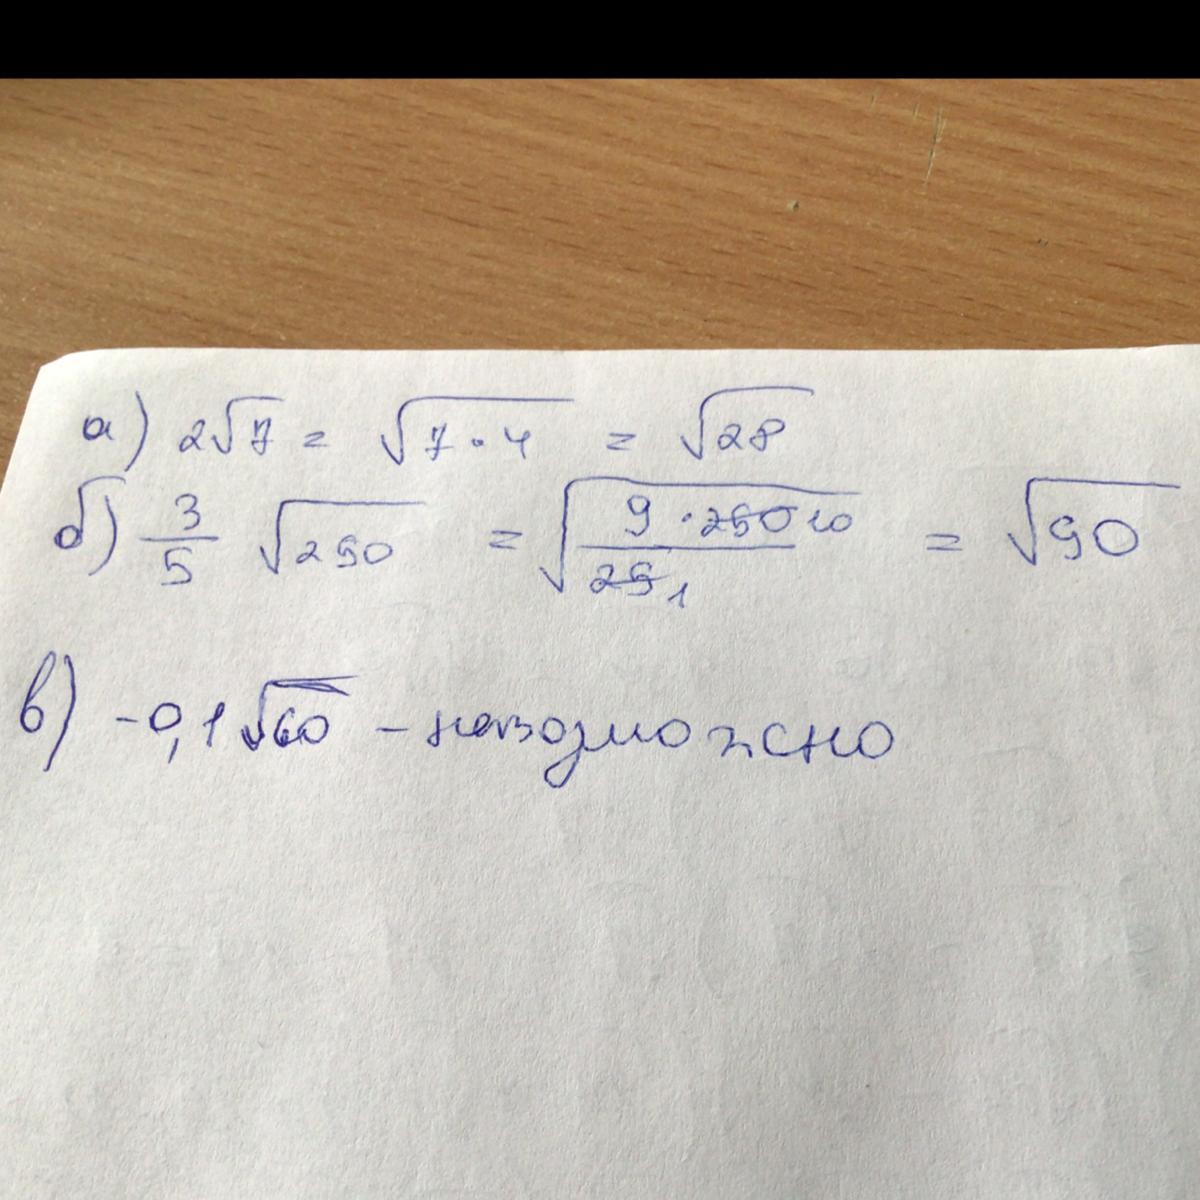 а) 2√7 = √7·4 = √28
б) 3/5 √250 = √(9·250 10 / 25 1) = √90
в) -0,1√60 - невозможно